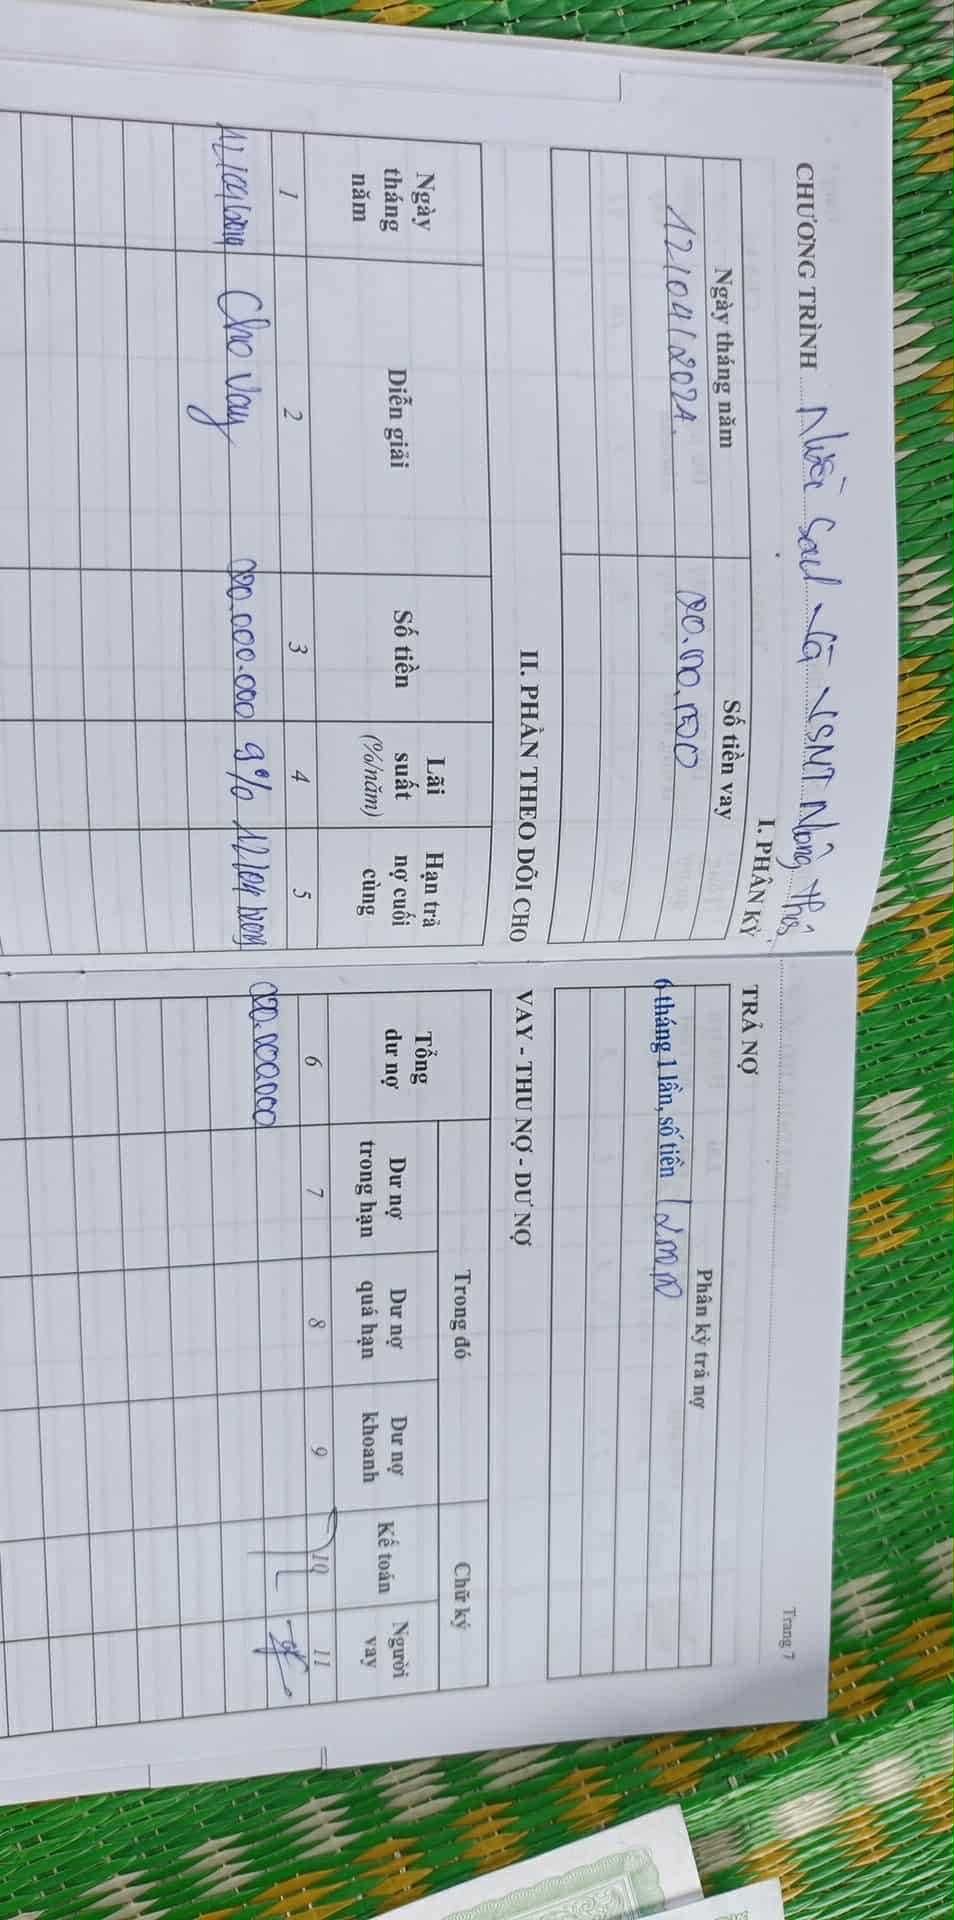 Trang 7
CHƯƠNG TRÌNH Nước sạch và VSMT Nông thôn
I. PHÂN KỲ TRẢ NỢ
Ngày tháng năm Số tiền vay Phân kỳ trả nợ
12/04/2024. 20.000.000 6 tháng 1 lần, số tiền
II. PHẦN THEO DÕI CHO VAY - THU NỢ - DƯ NỢ
Ngày tháng năm Diễn giải Số tiền Lãi suất (%/năm) Hạn trả nợ cuối cùng Tổng dư nợ Trong đó Chữ ký
Dư nợ trong hạn Dư nợ quá hạn Dư nợ khoanh Kế toán Người vay
1 2 3 4 5 6 7 8 9 10 11
12/04/2024 Cho vay 20.000.000 9% 20.000.000